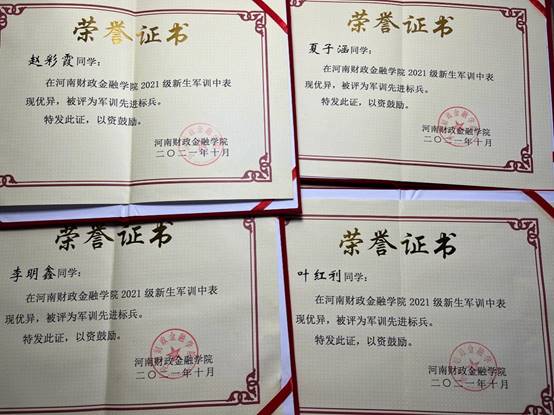 荣誉证书
赵彩霞同学：
在河南财政金融学院2021级新生军训中表
现优异，被评为军训先进标兵。
特发此证，以资鼓励。
河南财政金融学院
二〇二一年十月
荣誉证书
夏子涵同学：
在河南财政金融学院2021级新生军训中表
现优异，被评为军训先进标兵。
特发此证，以资鼓励。
河南财政金融学院
二〇二一年十月
荣誉证书
李明鑫同学：
在河南财政金融学院2021级新生军训中表
现优异，被评为军训先进标兵。
特发此证，以资鼓励。
河南财政金融学院
二〇二一年十月
荣誉证书
叶红利同学：
在河南财政金融学院2021级新生军训中表
现优异，被评为军训先进标兵。
特发此证，以资鼓励。
河南财政金融学院
二〇二一年十月